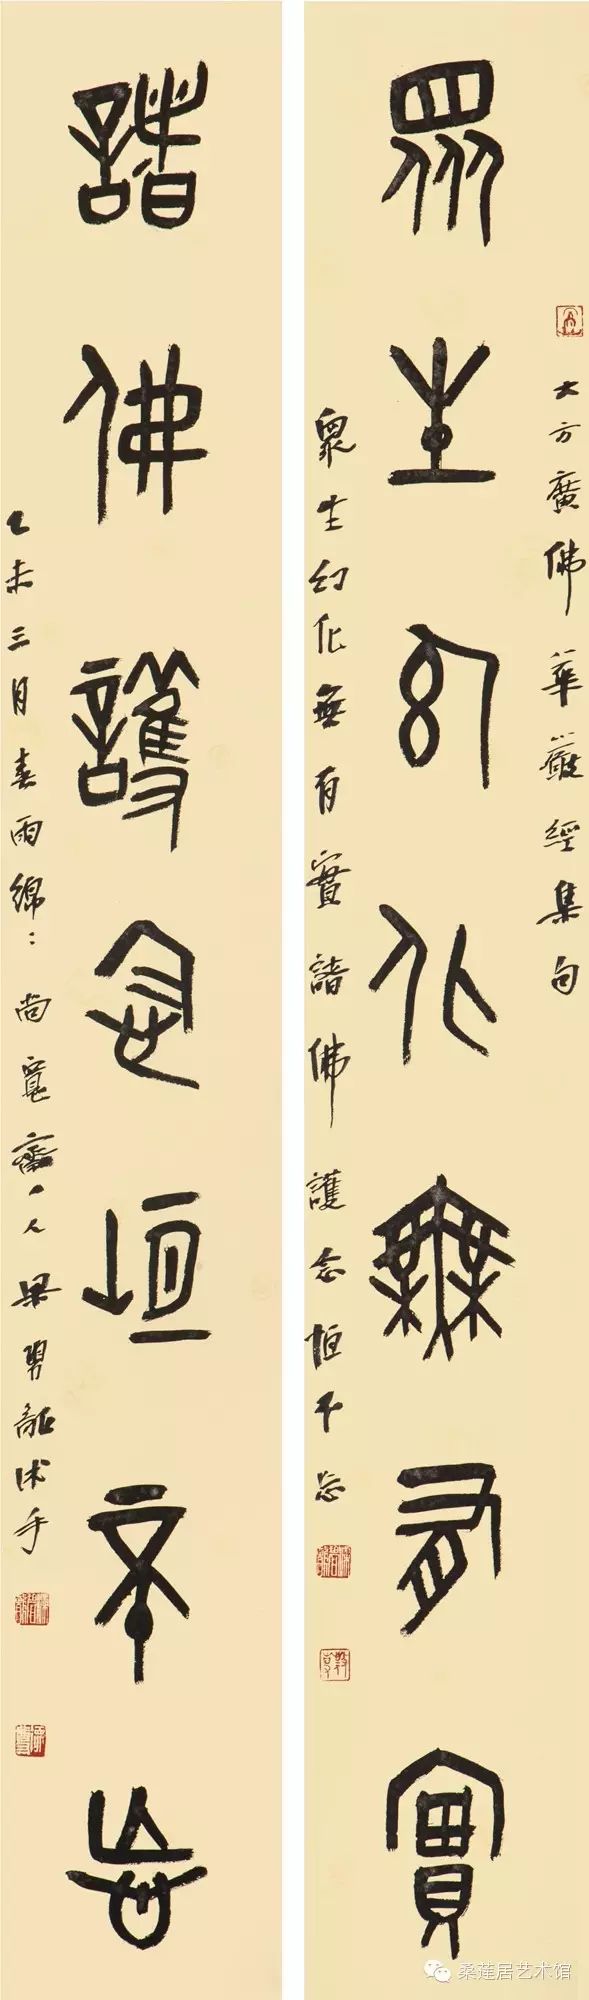 眾生幻化無有實
大方廣佛華嚴經集句
眾生幻化無有實諸佛護念恒不忘
諸佛護念恒不忘
乙未三月春雨綿：尚寬齋人梁勇龢沐手
桑莲居艺术馆